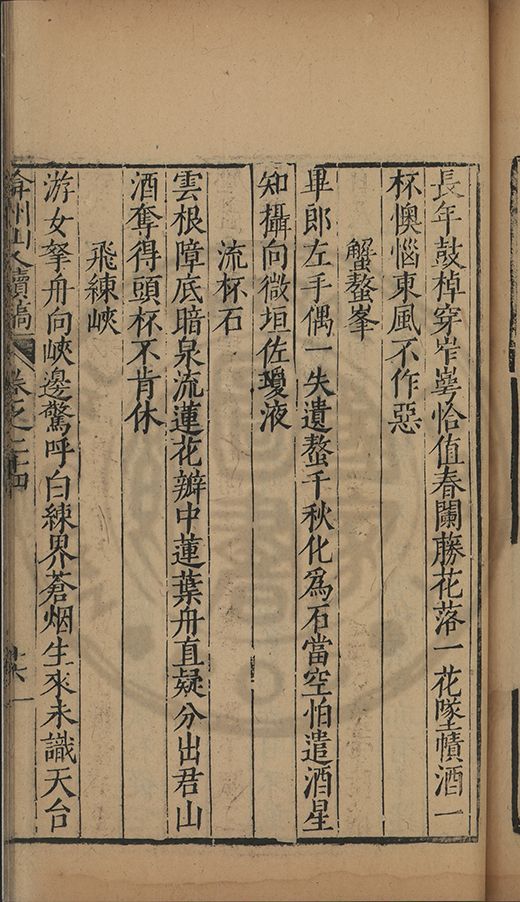 長年鼓棹穿岝㟧恰值春闌藤花落一花墜幘酒一
杯懊惱東風不作惡
蟹螯峯
畢郎左手偶一失遺螯千秋化爲石當空怕遣酒星
知攝向微垣佐瓊液
流杯石
雲根障底暗泉流蓮花瓣中蓮葉舟直疑分出君山
酒奪得頭杯不肯休
飛練峽
游女拏舟向峽邊驚呼白練界蒼烟生來未識天台
弇州山人續稿 卷之二十四